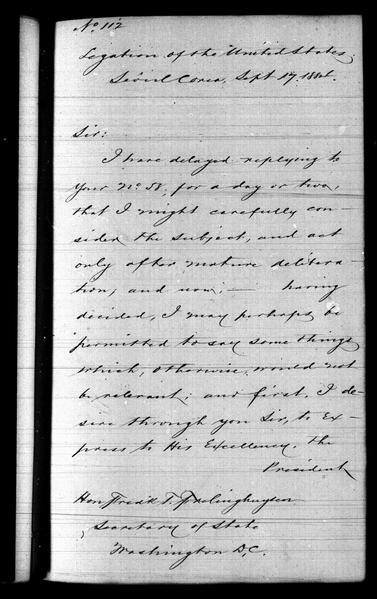 No 112
Legation of the United States
Seoul Corea, Sept 17. 1884.
Sir:
I have delayed replying to
your No 58, for a day or two,
that I might carefully con-
sider the subject, and act
only after mature delibera-
tion; and now; — having
decided, I may perhaps, be
permitted to say some things
which, otherwise, would not
be relevant; and first, I de-
sire through you Sir, to Ex-
press to His Excellency, the
President
Hon. Fredk T. Frelinghuysen
Secretary of State
Washington D.C.